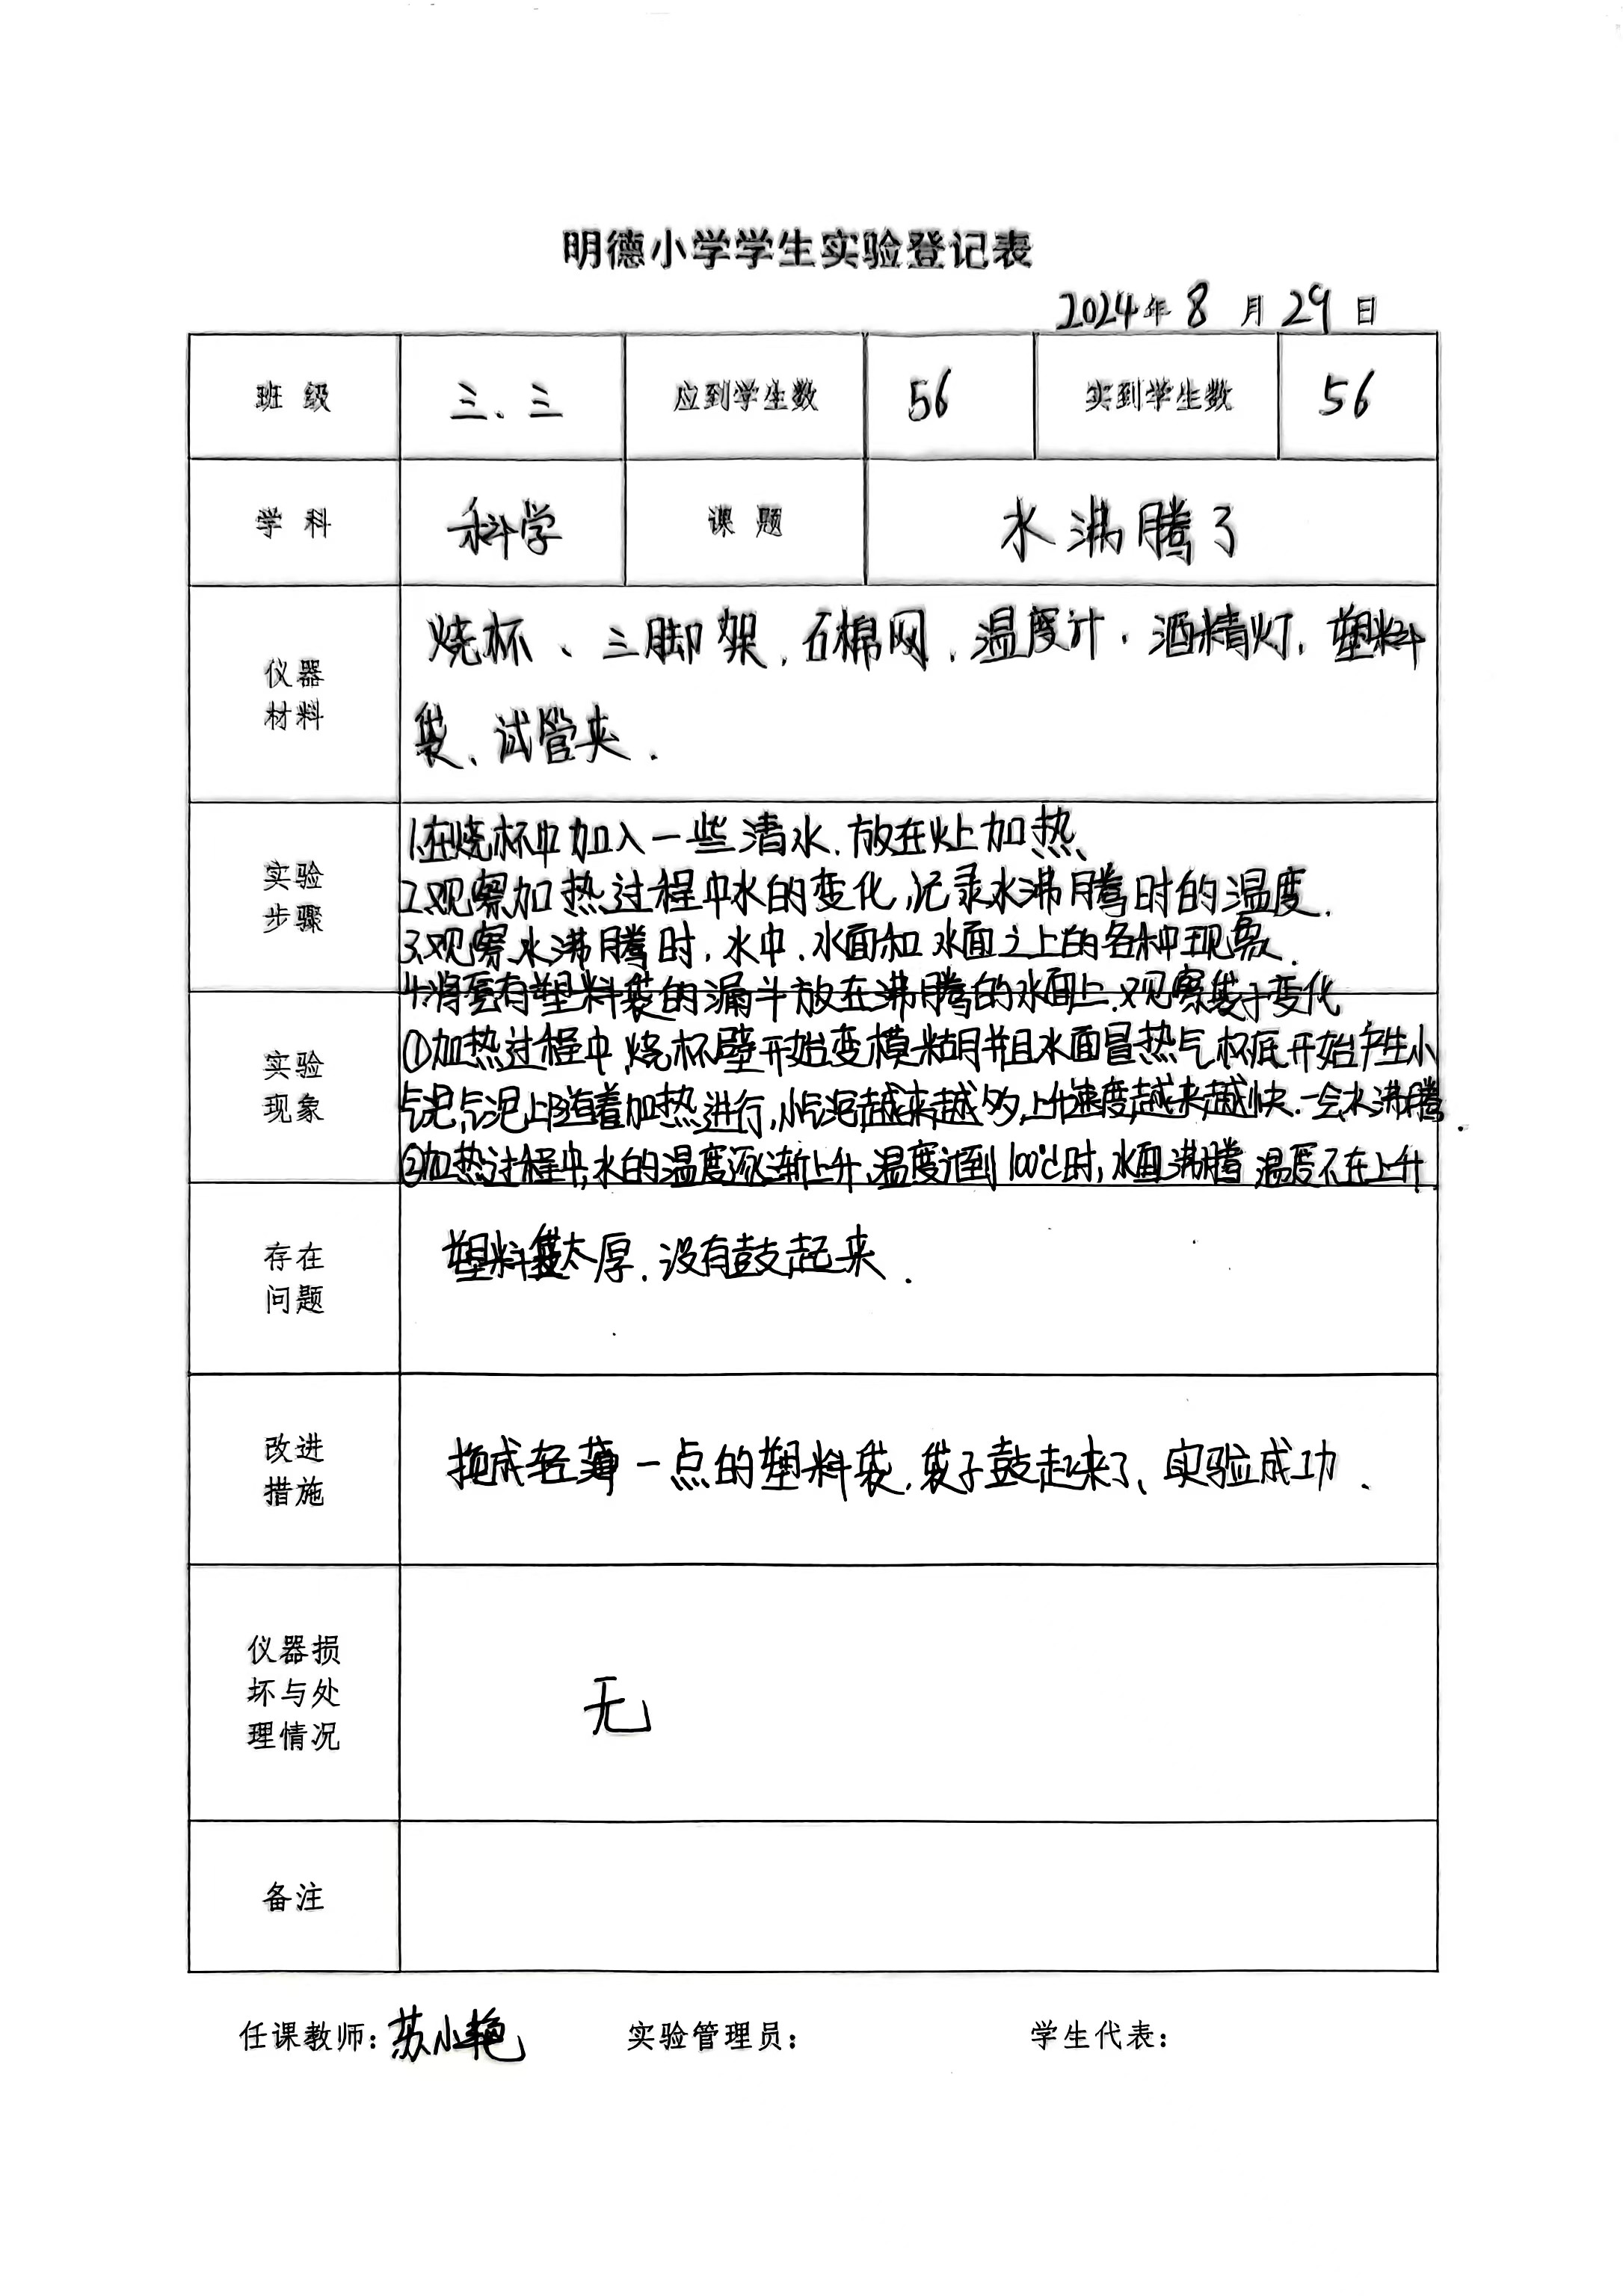 明德小学学生实验登记表
2024年 8 月 29 日
班级 三、三 应到学生数 56 实到学生数 56
学科 科学 课题 水沸腾了
仪器
材料
烧杯、三脚架、石棉网、温度计、酒精灯、塑料
袋、试管夹.
实验
步骤
1.在烧杯中加入一些清水.放在灶上加热.
2.观察加热过程中水的变化,记录水沸腾时的温度.
3.观察水沸腾时,水中,水面和水面之上的各种现象.
4.将套有塑料袋的漏斗放在沸腾的水面上.观察袋子变化
实验
现象
①加热过程中,烧杯壁开始变模糊并且水面冒热气杯底开始产生小
气泡,气泡上 随着加热进行,小气泡越来越多,上升速度越来越快.一会水沸腾.
②加热过程中,水的温度逐渐上升,温度达到100℃时,水面沸腾 温度不在上升.
存在
问题
塑料袋太厚,没有鼓起来.
改进
措施
换成轻薄一点的塑料袋,袋子鼓起来了、实验成功.
仪器损
坏与处
理情况
无
备注
任课教师:苏小艳 实验管理员: 学生代表: